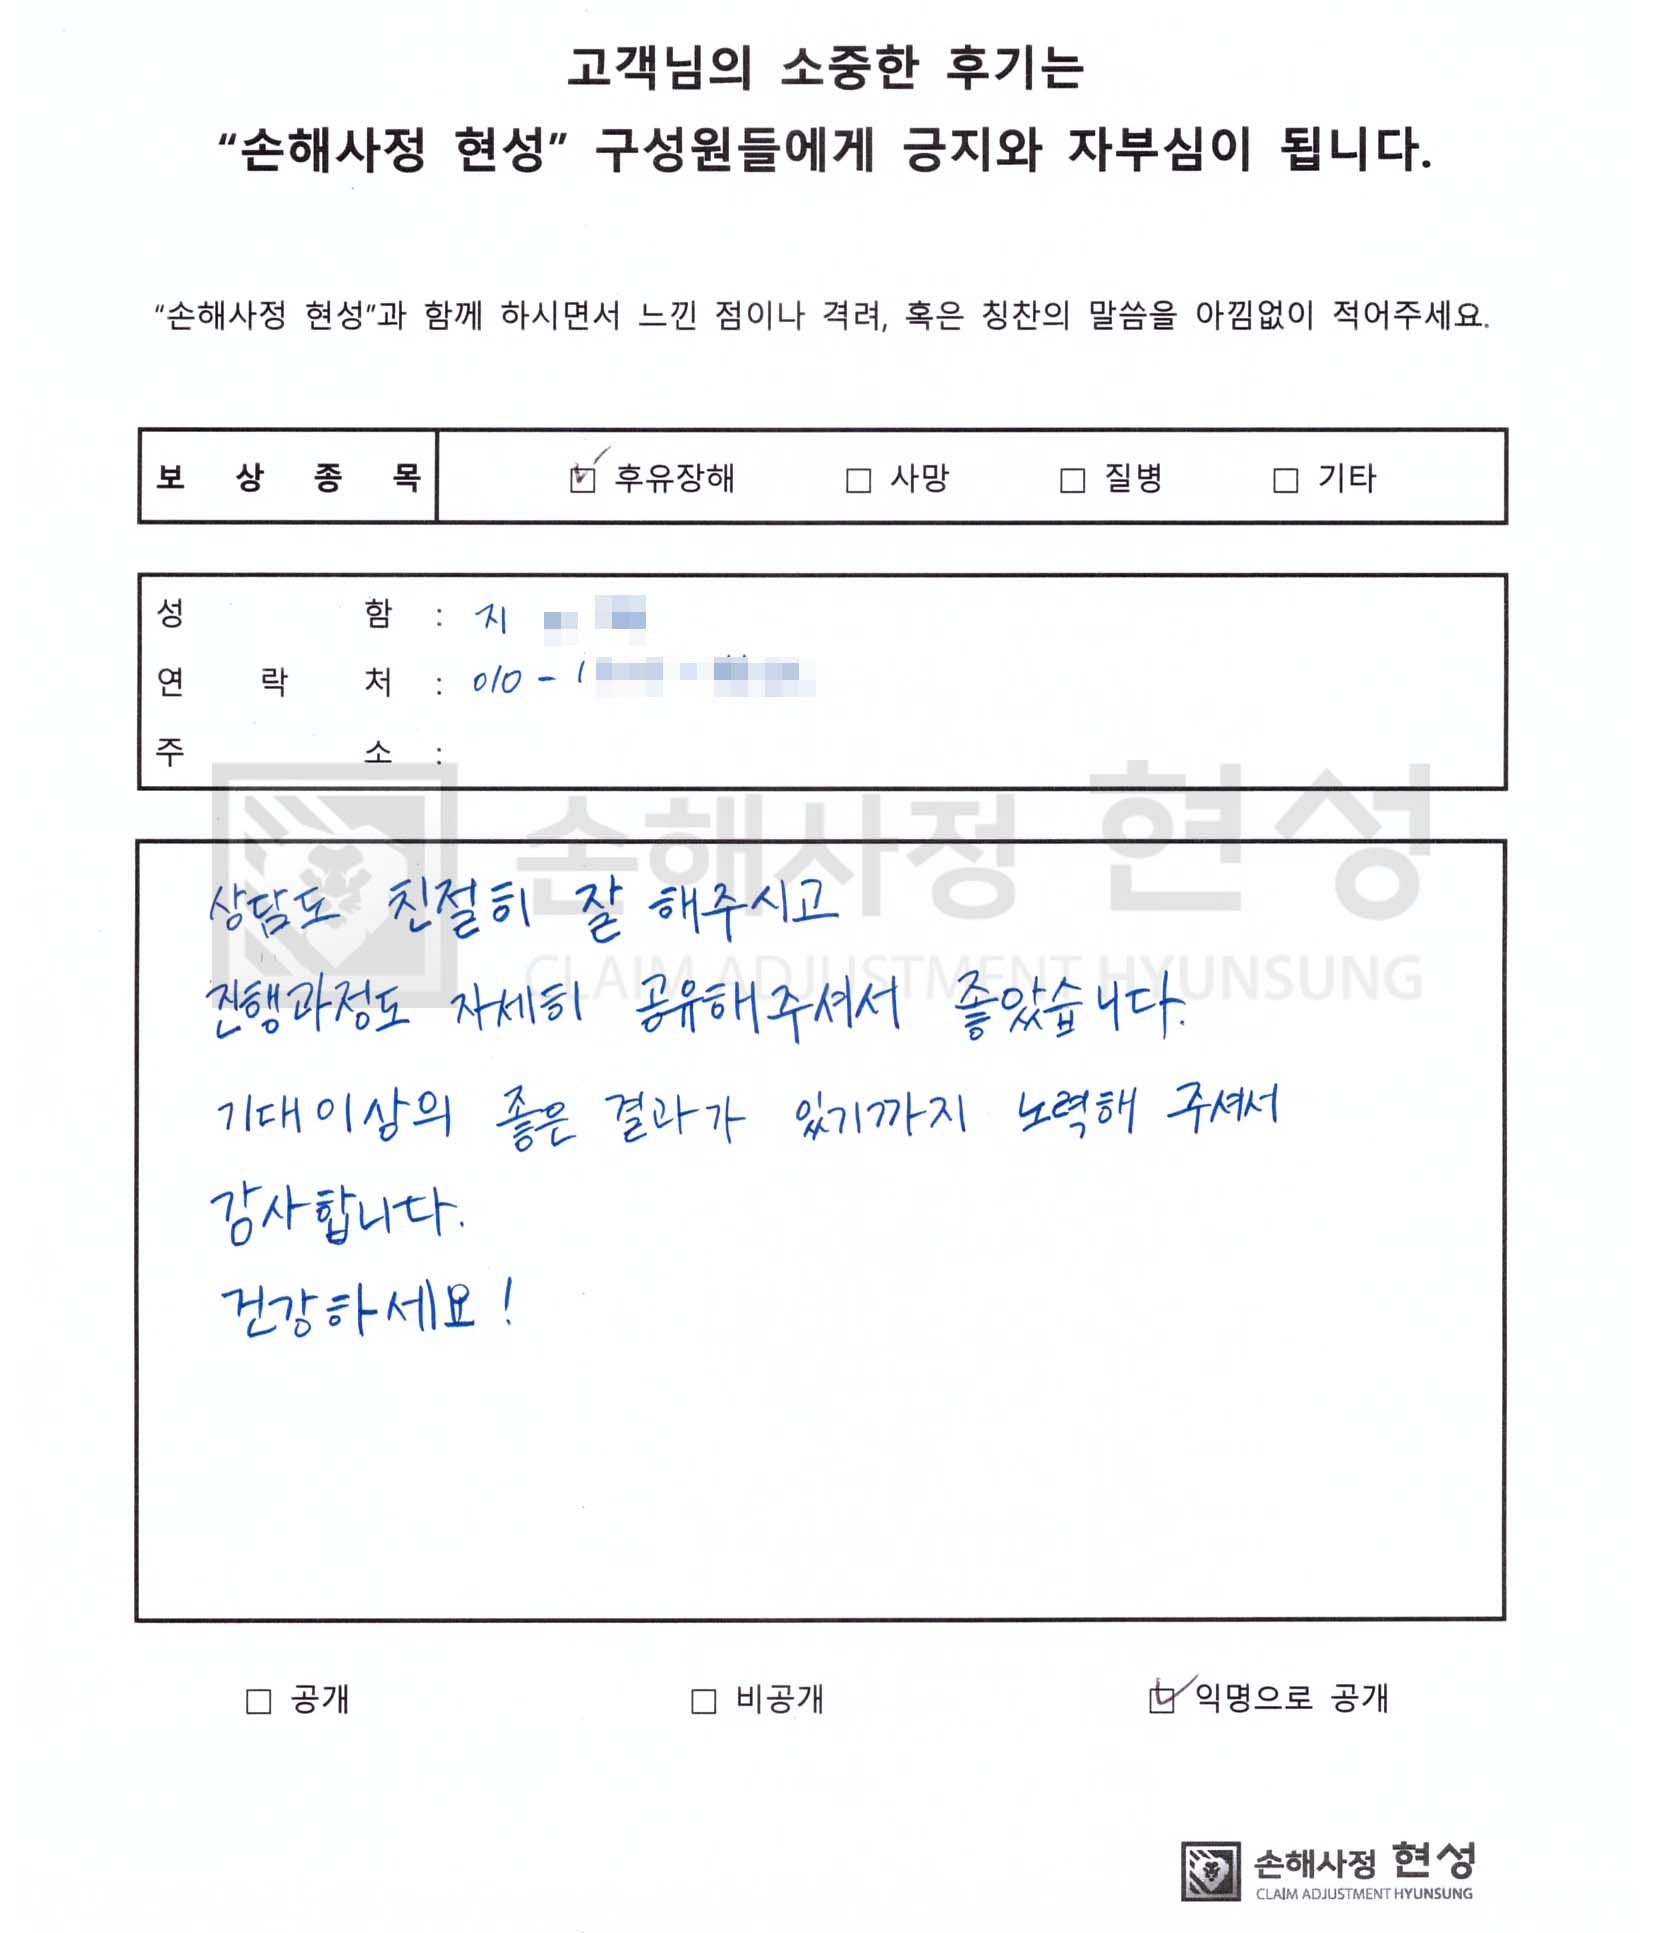 고객님의 소중한 후기는
“손해사정 현성” 구성원들에게 긍지와 자부심이 됩니다.
“손해사정 현성”과 함께 하시면서 느낀 점이나 격려, 혹은 칭찬의 말씀을 아낌없이 적어주세요.
보 상 종 목 ☑ 후유장해 □ 사망 □ 질병 □ 기타
성 함 : 지
연 락 처 : 010 - 1
주 소 :
손해사정 현성
CLAIM ADJUSTMENT HYUNSUNG
상담도 친절히 잘 해주시고
진행과정도 자세히 공유해주셔서 좋았습니다.
기대이상의 좋은 결과가 있기까지 노력해 주셔서
감사합니다.
건강하세요!
□ 공개 □ 비공개 ☑ 익명으로 공개
손해사정 현성
CLAIM ADJUSTMENT HYUNSUNG